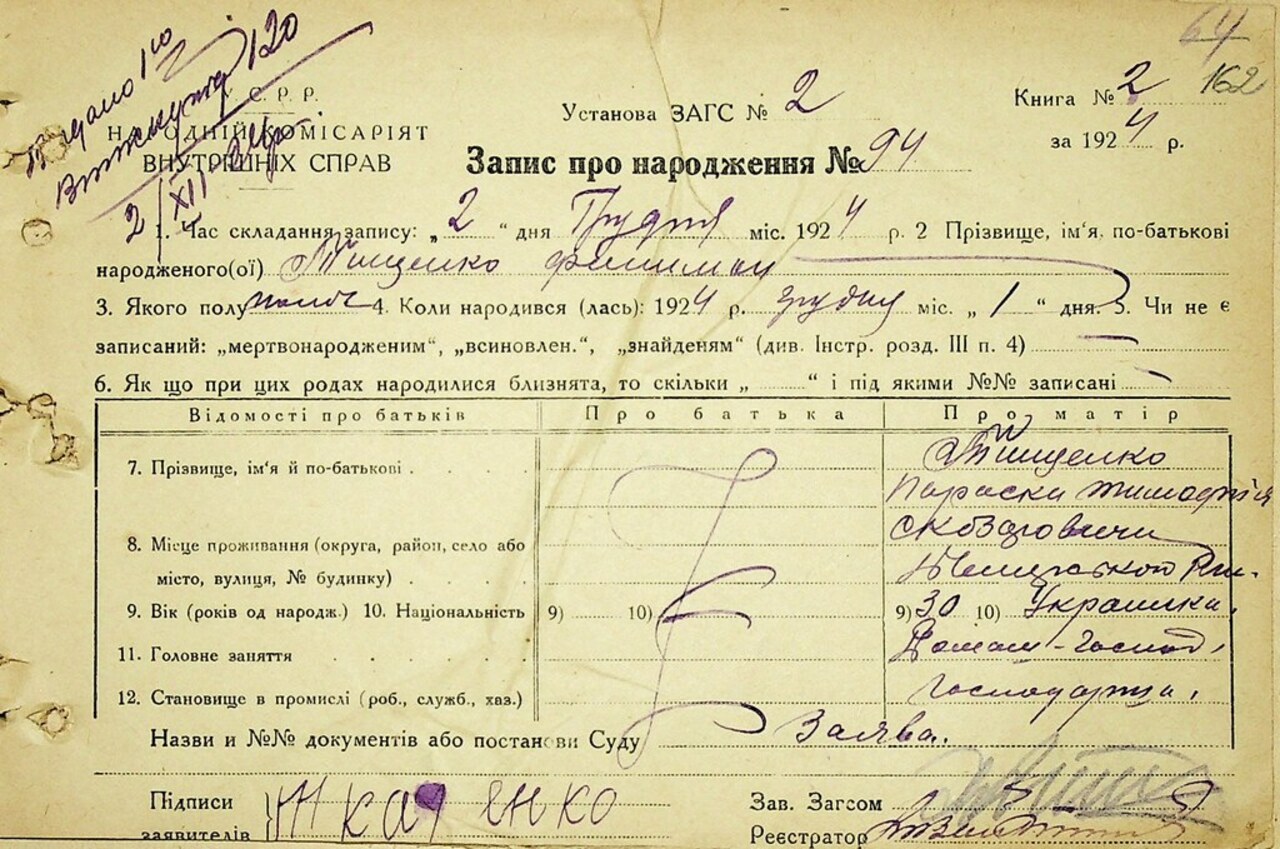 64
162
Видано
120
2/XII
У. С. Р. Р.
НАРОДНІЙ КОМІСАРІЯТ
ВНУТРЕШНІХ СПРАВ
Установа ЗАГС № 2
Книга № 2
за 1924 р.
Запис про народження № 94
1. Час складання запису: „2“ дня Грудня міс. 1924 р. 2 Прізвище, ім'я, по-батькові
народженого(ої) Тищенко Филимон
3. Якого полу 4. Коли народився (лась): 1924 р. грудня міс. „1“ дня. 5. Чи не є
записаний: „мертвонародженим“, „всиновлен.“, „знайденям“ (див. Інстр. розд. III п. 4)
6. Як що при цих родах народилися близнята, то скільки „ “ і під якими №№ записані
Відомості про батьків Про батька Про матір
7. Прізвище, ім'я й по-батькові Тищенко
Параска
8. Місце проживання (округа, район, село або
місто, вулиця, № будинку)
9. Вік (років од народж.) 10. Національність 9) 10) 9) 30 10) Украинка.
11. Головне заняття
12. Становище в промислі (роб., служб., хаз.)
Назви и №№ документів або постанови Суду Заява.
Підписи
заявителів Ткаченко
Зав. Загсом
Реєстратор